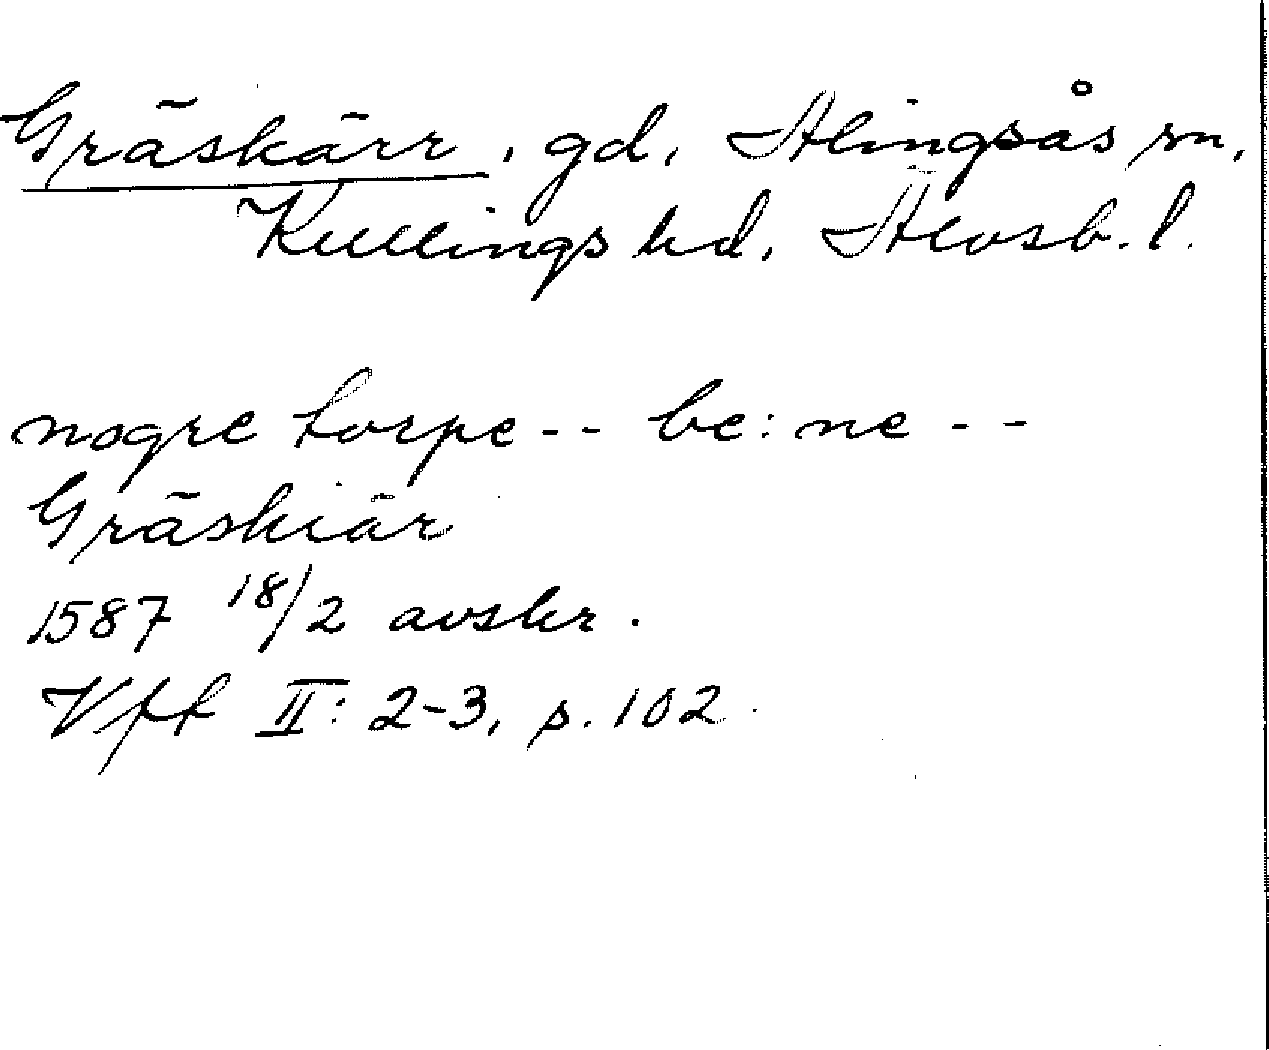 Gräskärr, gd, Alingsås sn,
Kullings hd, Älvsb. l.
nogre torpe -- be:ne --
Gräskiär
1587 18/2 avskr.
Vff II: 2-3, s. 102